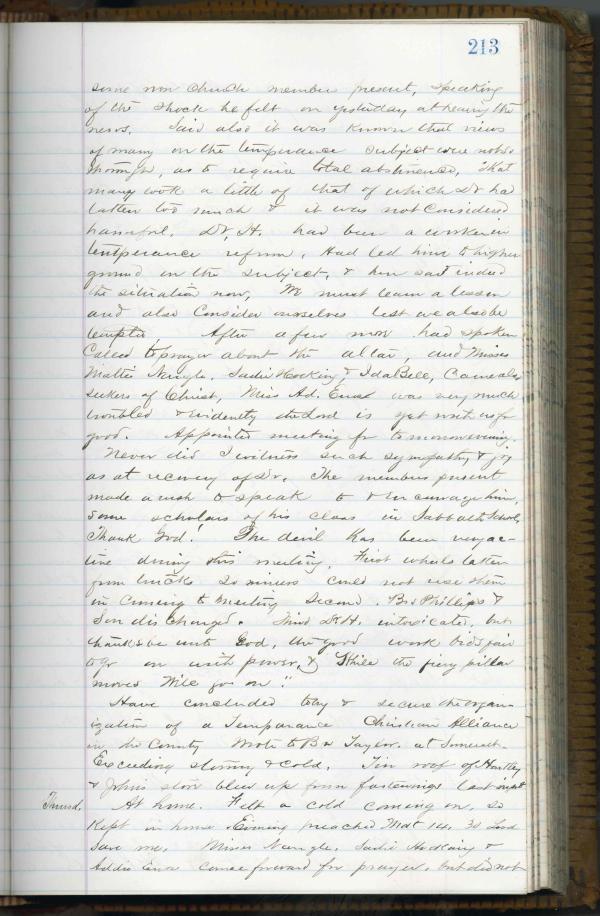 213
some non church member present, speaking
of the shock he felt on yesterday at hearing the
news. Said also it was known that views
of many on the temperance subject were not so
thorough, as to require total abstinence, That
many took a little of that of which Dr had
taken too much & it was not considered
harmful. Dr. H. had been a worker in
temperance reform, Had led him to higher
ground on the subject, & how sad indeed
the situation now, We must learn a lesson
and also consider ourselves lest we also be
tempted. After a few more had spoken
Called to prayer about the altar, and Misses
Mattie Nangle, Sadie Hocking & Ida Bell, Came also
seekers of Christ, Miss Ad. Enos was very much
troubled & evidently the Lord is yet with us for
good. Appointed meeting for tomorrow evening.
Never did I witness such sympathy & joy
as at recovery of Dr. The members present
made a rush to speak to & encourage him,
some scholars of his class in Sabbath School,
Thank God! The devil has been very ac-
tive during this meeting. First wheels taken
from trucks so miners could not use them
in coming to meeting Second. Bro Phillips &
Son discharged. Third Dr H. intoxicated. but
thanks be unto God, the good work bids fair
to go on with power, & "While the fiery pillar
moves We'll go on."
Have concluded to try & secure the organ-
ization of a Temperance Christian Alliance
in the County Wrote to Bro Taylor. at Somerset.
Exceeding stormy & cold. Tin roof of Hartley
& Johns store blew up from fastenings last night
Thursd. At home. Felt a cold coming on, so
Kept in home Evening preached Mat 14. 30 Lord
Save me. Misses Nangle. Sadie Hocking &
Addie Enos came forward for prayer. but did not